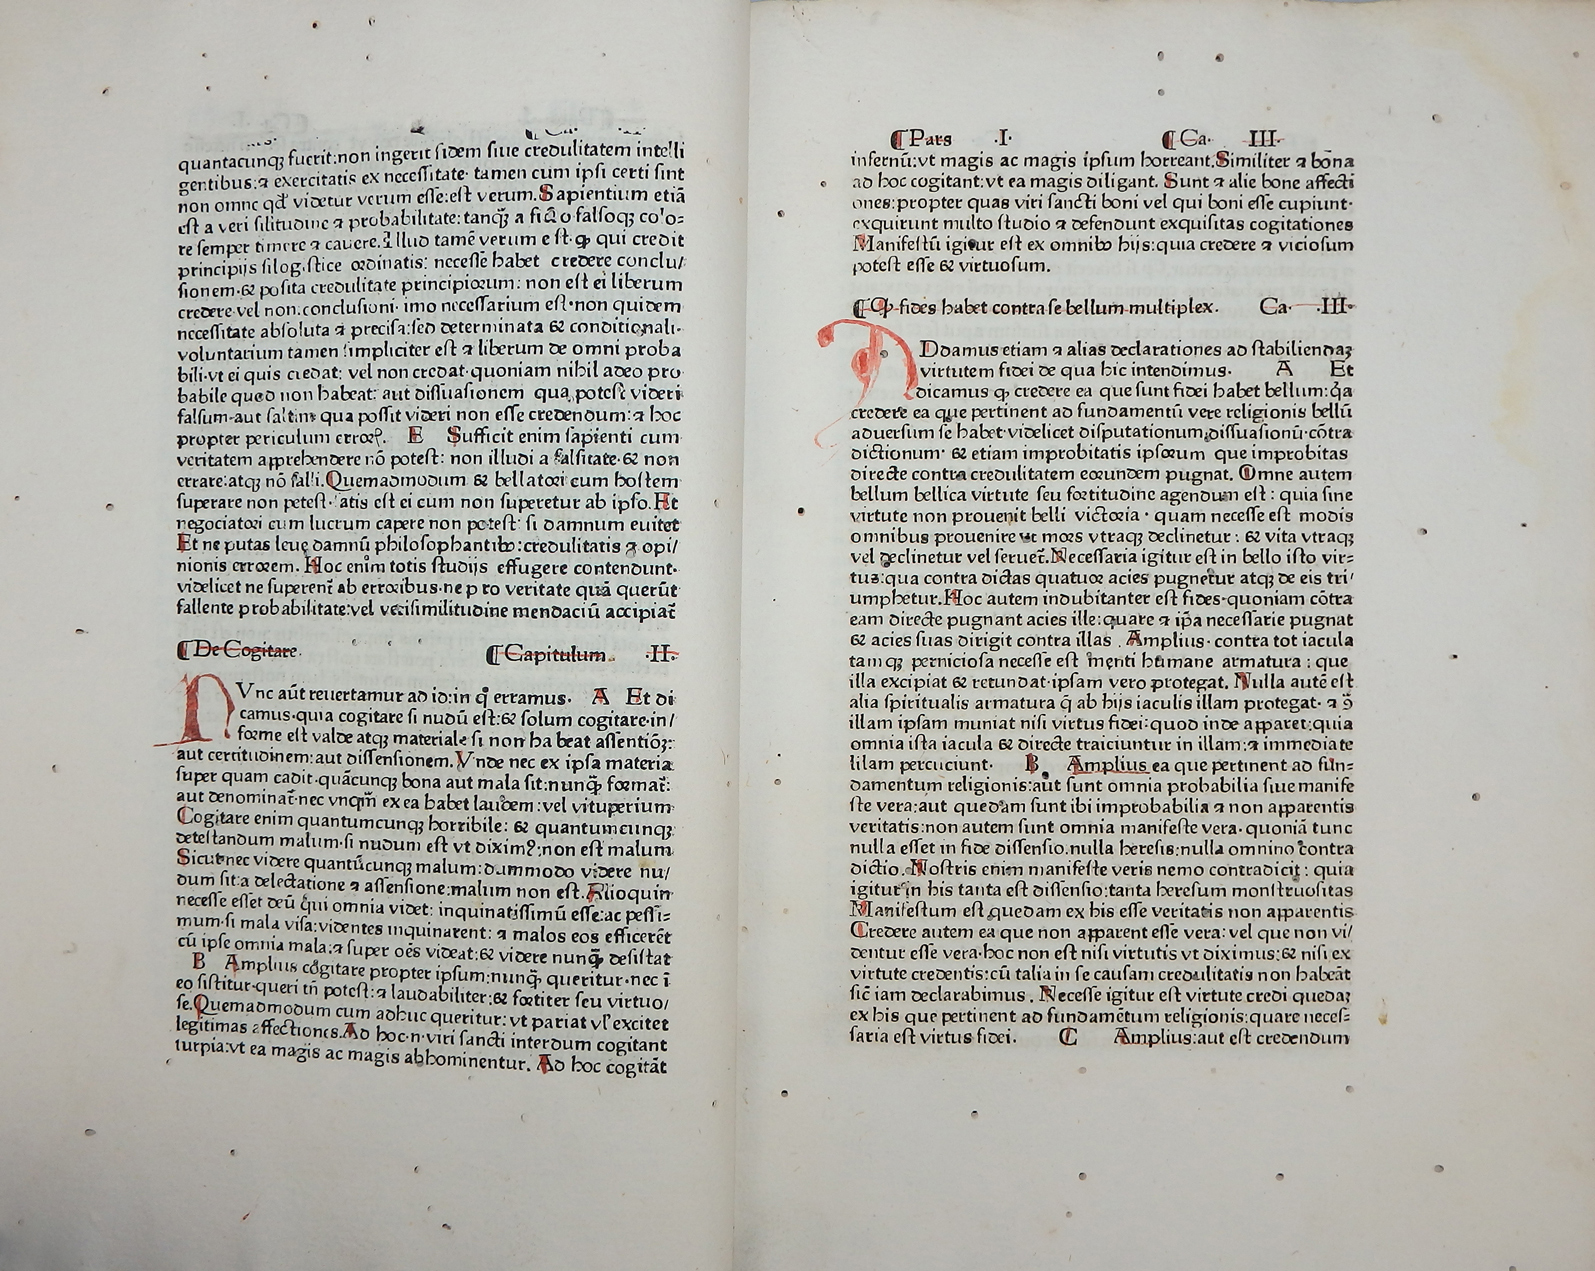 quantacunqꝫ fuerit:non ingerit fidem siue credulitatem intelli
gentibus:⁊ exercitatis ex necessitate· tamen cum ipsi certi sint
non omne qd' videtur verum esse:est verum.Sapientium etiā
est a veri silitudine ⁊ probabilitate:tanqꝫ a falsoqꝫ
re semper timere ⁊ cauere. Illud tamē verum est·ꝙ qui credit
principijs silogistice ordinatis: necesse habet credere conclu/
sionem·& posita credulitate principiorum: non est ei liberum
credere vel non:conclusioni· imo necessarium est·non quidem
necessitate absoluta ⁊ precisa:sed determinata & conditionali·
voluntarium tamen simpliciter est ⁊ liberum de omni proba
bili·vt ei quis credat: vel non credat·quoniam nihil adeo pro
babile quod non habeat: aut dissuasionem qua potest videri
falsum·aut saltim qua possit videri non esse credendum:⁊ hoc
propter periculum erroꝝ. E Sufficit enim sapienti cum
veritatem apprehendere nō potest: non illudi a falsitate·& non
errare:atqꝫ nō falli.Quemadmodum & bellatori cum hostem
superare non potest·satis est ei cum non superetur ab ipso.Et
negociatori cum lucrum capere non potest: si damnum euitet
Et ne putas leue damnū philosophantibꝰ:credulitatis ⁊ opi/
nionis errorem. Hoc enim totis studijs effugere contendunt·
videlicet ne superent̄ ab erroribus·ne pro veritate quā querūt
fallente probabilitate:vel verisimilitudine mendaciū accipiat̄
¶De Cogitare. ¶Capitulum. ·II·
NVnc aūt reuertamur ad id:in q̊ erramus· A Et di
camus·quia cogitare si nudū est:& solum cogitare·in/
forme est valde atqꝫ materiale·si non habeat assentiōꝫ:
aut certitudinem:aut dissensionem.Vnde nec ex ipsa materia
super quam cadit·quācunqꝫ bona aut mala sit:nunqꝫ format̄:
aut denominat̄·nec vnqm̄ ex ea habet laudem:vel vituperium
Cogitare enim quantumcunqꝫ horribile: & quantumcunqꝫ
detestandum malum·si nudum est vt diximꝰ:non est malum
Sicut·nec videre quantūcunqꝫ malum:dummodo videre nu/
dum sit:a delectatione ⁊ assensione:malum non est.Alioquin
necesse esset deū qui omnia videt: inquinatissimū esse:ac pessi=
mum·si mala visa:videntes inquinarent: ⁊ malos eos efficerēt
cū ipse omnia mala:⁊ super oēs videat:& videre nunqꝫ desistat
B Amplius cogitare propter ipsum:nunqꝫ queritur·nec ī
eo sistitur·queri tn̄ potest:⁊ laudabiliter:& fortiter seu virtuo/
se.Quemadmodum cum adhuc queritur: vt pariat vl' excitet
legitimas affectiones.Ad hoc·n·viri sancti interdum cogitant
turpia:vt ea magis ac magis abhominentur. Ad hoc cogitāt
¶Pars ·I· ¶Ca· III·
infernū:vt magis ac magis ipsum horreant.Similiter ⁊ bona
ad hoc cogitant:vt ea magis diligant. Sunt ⁊ alie bone affecti
ones:propter quas viri sancti boni vel qui boni esse cupiunt·
exquirunt multo studio ⁊ defendunt exquisitas cogitationes
Manifestū igitur est ex omnibꝰ hijs:quia credere ⁊ viciosum
potest esse & virtuosum.
¶Ꝙ fides habet contra se bellum multiplex. Ca· ·III·
ADdamus etiam ⁊ alias declarationes ad stabiliendaꝫ
virtutem fidei de qua hic intendimus· A Et
dicamus ꝙ credere ea que sunt fidei habet bellum:q̇a
credere ea que pertinent ad fundamentū vere religionis bellū
aduersum se habet·videlicet disputationum,dissuasionū·cōtra
dictionum· & etiam improbitatis ipsorum que improbitas
directe contra credulitatem eorundem pugnat. Omne autem
bellum bellica virtute seu fortitudine agendum est : quia sine
virtute non prouenit belli victoria · quam necesse est modis
omnibus prouenire vt mors vtraqꝫ declinetur : & vita vtraqꝫ
vel declinetur vel seruet̄.Necessaria igitur est in bello isto vir=
tus:qua contra dictas quatuor acies pugnetur atqꝫ de eis tri/
umphetur.Hoc autem indubitanter est fides·quoniam cōtra
eam directe pugnant acies ille:quare ⁊ ip̄a necessarie pugnat
& acies suas dirigit contra illas . Amplius· contra tot iacula
tamqꝫ perniciosa necesse est menti humane armatura : que
illa excipiat & retundat·ipsam vero protegat. Nulla autē est
alia spiritualis armatura q̄ ab hijs iaculis illam protegat· ⁊
illam ipsam muniat nisi virtus fidei:quod inde apparet:quia
omnia ista iacula & directe traiciuntur in illam:⁊ immediate
lilam percuciunt· B Amplius ea que pertinent ad fun=
damentum religionis:aut sunt omnia probabilia siue manife
ste vera:aut quedam sunt ibi improbabilia ⁊ non apparentis
veritatis:non autem sunt omnia manifeste vera· quoniā tunc
nulla esset in fide dissensio.nulla heresis:nulla omnino contra
dictio.Nostris enim manifeste veris nemo contradicit : quia
igitur in his tanta est dissensio:tanta heresum monstruositas
Manifestum est quedam ex his esse veritatis non apparentis
Credere autem ea que non apparent esse vera: vel que non vi/
dentur esse vera·hoc non est nisi virtutis vt diximus:& nisi ex
virtute credentis:cū talia in se causam credulitatis non habeāt
sic̄ iam declarabimus . Necesse igitur est virtute credi quedaꝫ
ex his que pertinent ad fundamētum religionis:quare neces=
saria est virtus fidei. C Amplius:aut est credendum